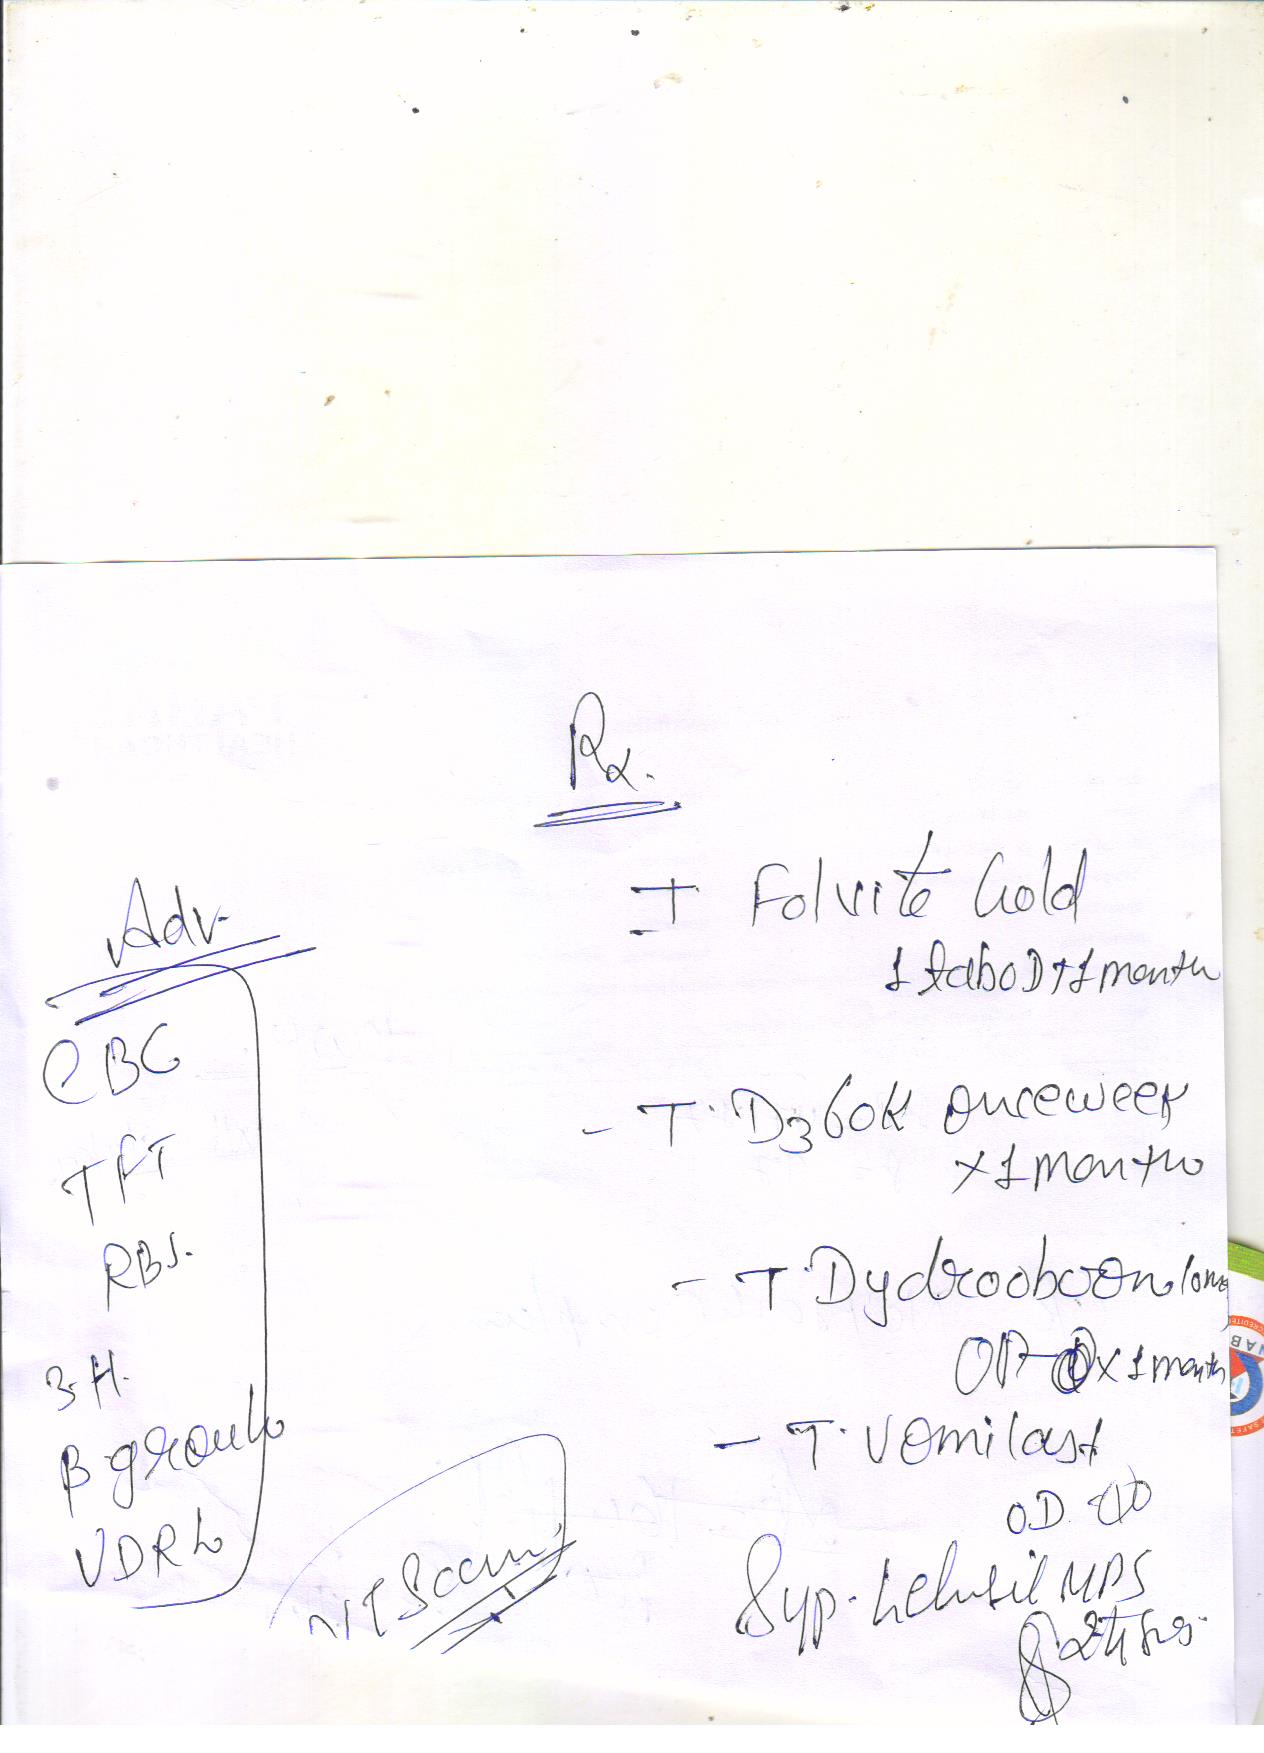 Rx.
T Folvite Gold
1 tab OD x 1 month
- T. D3 60K once week
x 1 month
- T. Dydroboon 10mg
OD x 1 month
- T. Vomilast
OD
Syp. Gelusil MPS
2 tsf
Adv.
CBC
TFT
RBS.
B. group
VDRL
NT Scan